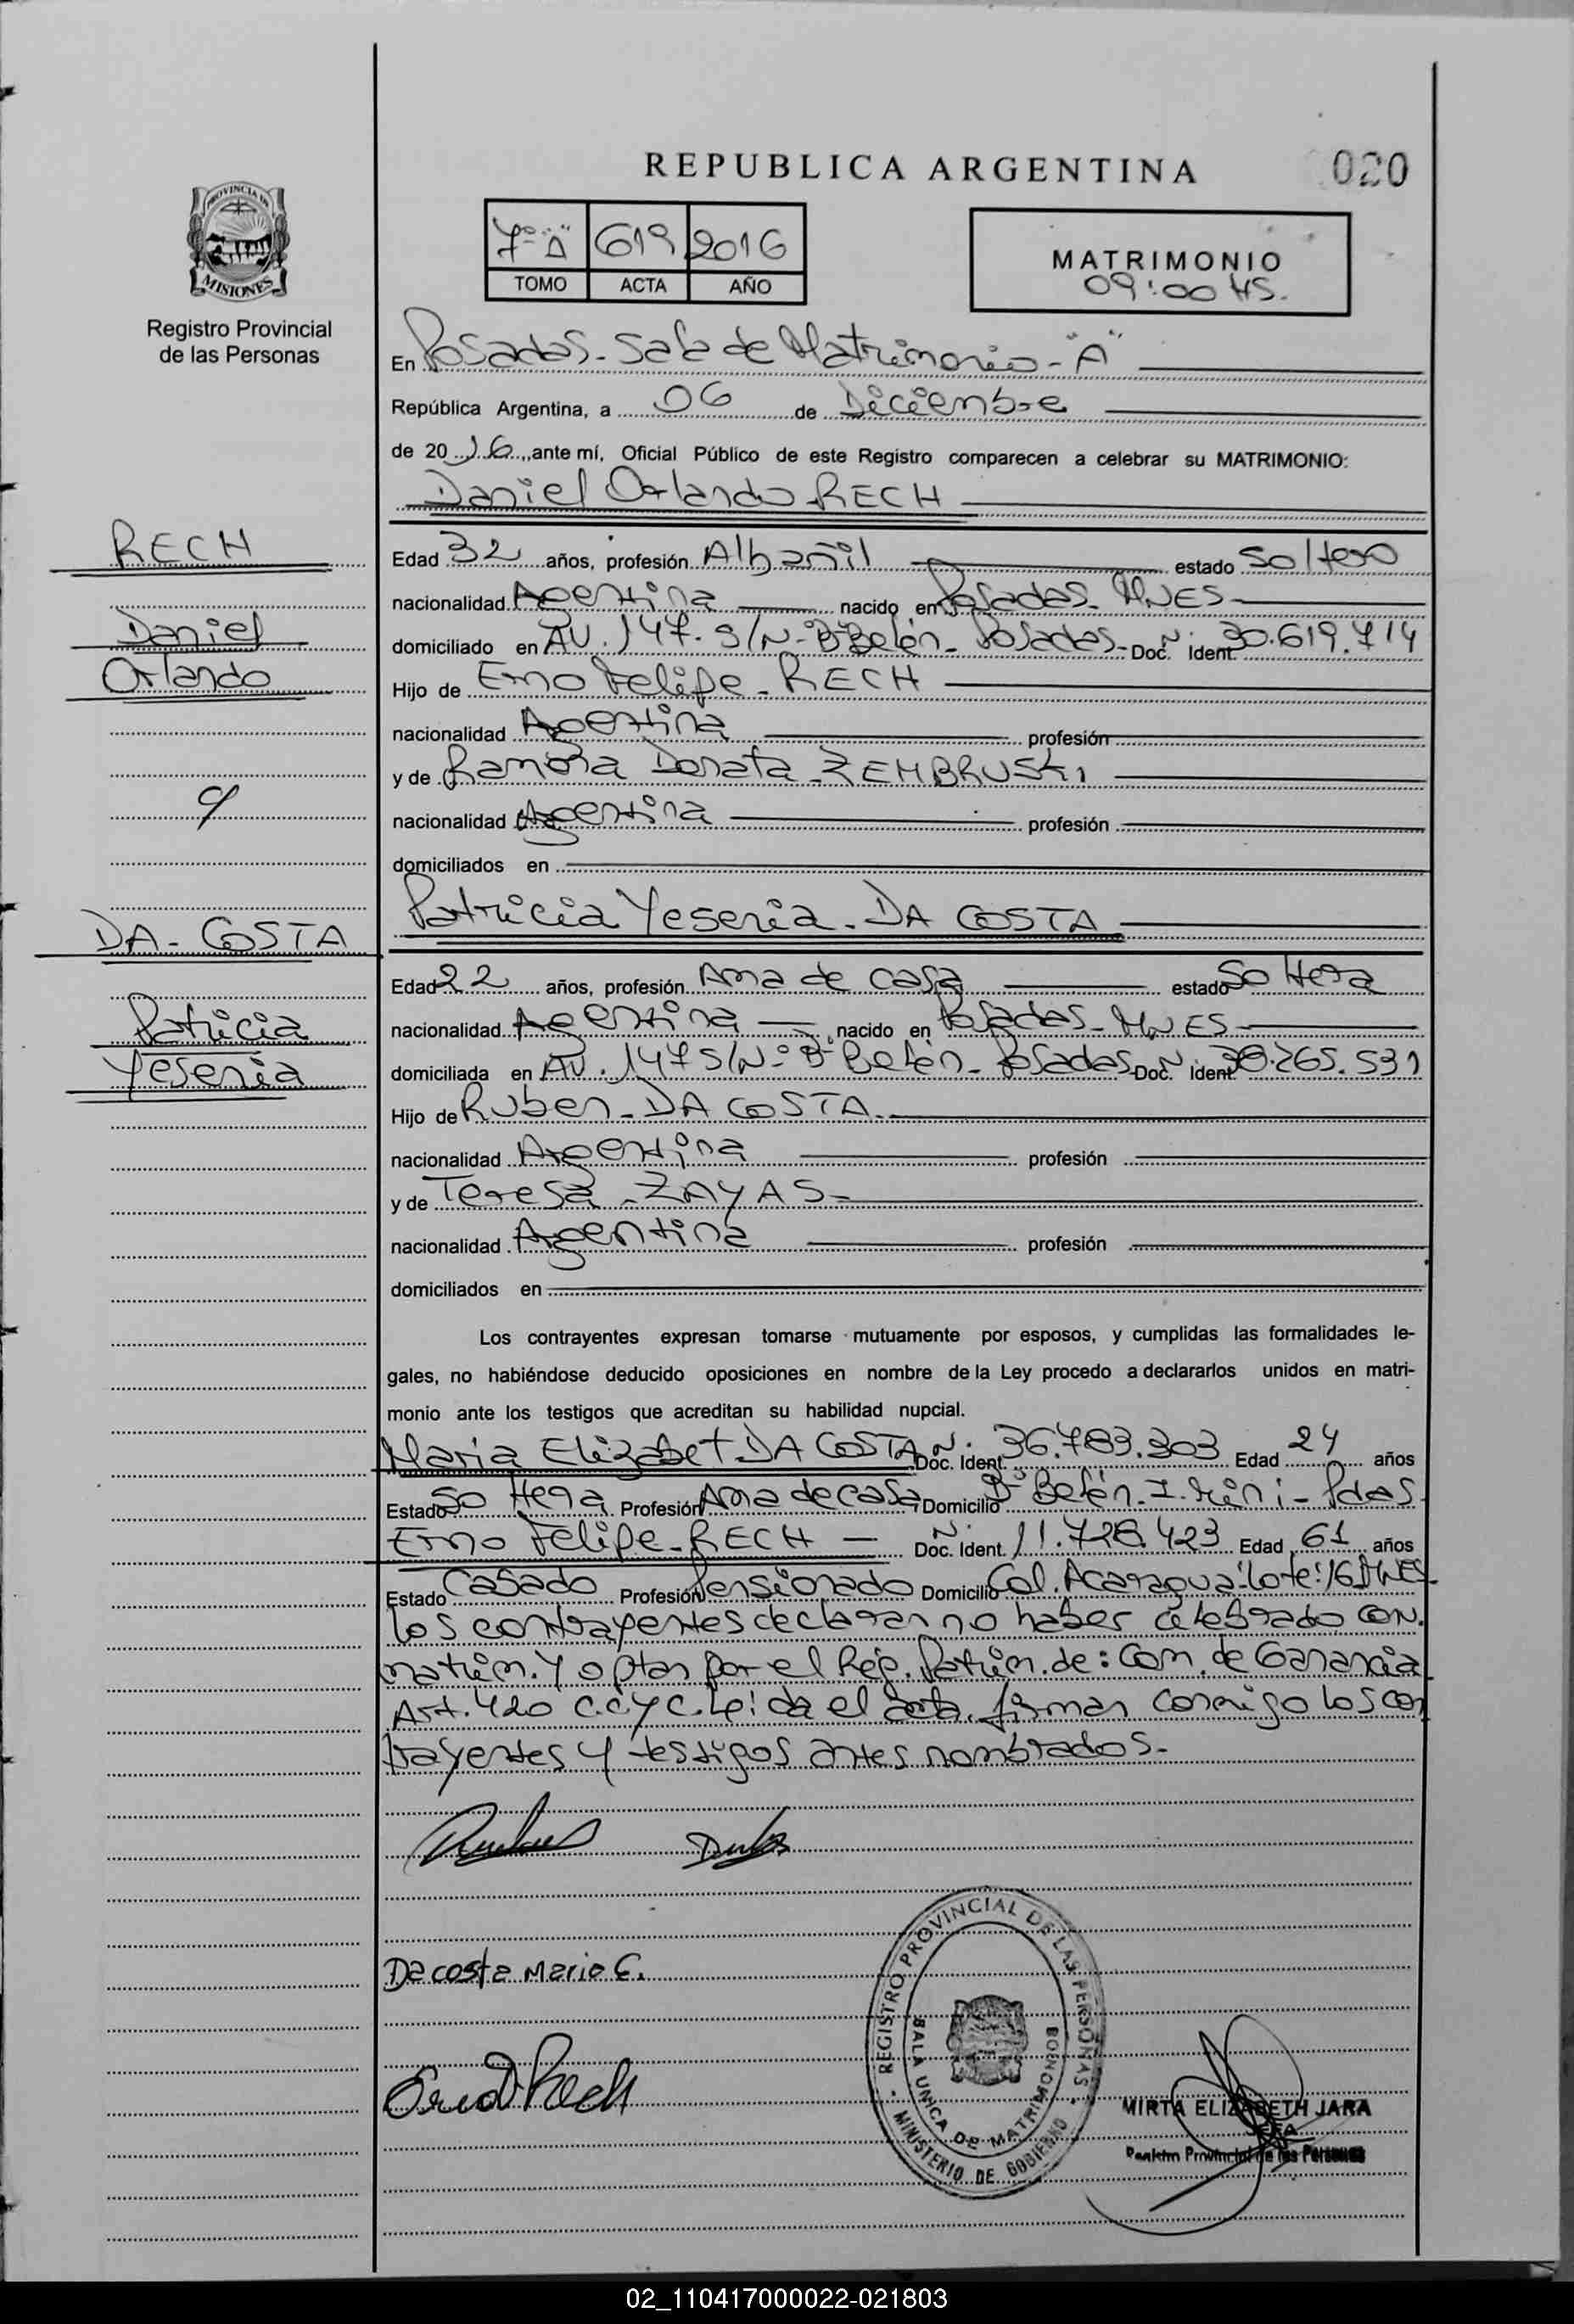 REPUBLICA ARGENTINA
020
PROVINCIA DE
MISIONES
Registro Provincial
de las Personas
7º "A" 619 2016
TOMO ACTA AÑO
MATRIMONIO
09:00 HS.
En Posadas - Sala de Matrimonio - "A"
República Argentina, a 06 de Diciembre
de 2016, ante mí, Oficial Público de este Registro comparecen a celebrar su MATRIMONIO:
Daniel Orlando RECH
RECH
Daniel
Orlando
Edad 32 años, profesión Albañil estado soltero
nacionalidad Argentina nacido en Posadas - MNES -
domiciliado en AV. 147. S/N - Bº Belén - Posadas - Doc. Ident. Nº 30.619.714
Hijo de Erno Felipe - RECH
nacionalidad Argentina profesión
y de Ramona Donata - ZEMBRUSKI
nacionalidad Argentina profesión
domiciliados en
y
DA - COSTA
Patricia
Yesenia
Patricia Yesenia - DA COSTA
Edad 22 años, profesión Ama de casa estado soltera
nacionalidad Argentina nacido en Posadas - MNES -
domiciliada en AV. 147 S/Nº Bº Belén - Posadas - Doc. Ident. Nº 38.265.531
Hijo de Ruben - DA COSTA -
nacionalidad Argentina profesión
y de Teresa - ZAYAS -
nacionalidad Argentina profesión
domiciliados en
Los contrayentes expresan tomarse mutuamente por esposos, y cumplidas las formalidades le-
gales, no habiéndose deducido oposiciones en nombre de la Ley procedo a declararlos unidos en matri-
monio ante los testigos que acreditan su habilidad nupcial.
Maria Elizabet DA COSTA Doc. Ident. Nº 36.783.303 Edad 24 años
Estado soltera Profesión Ama de casa Domicilio Bº Belén - I. Mini - Pdas
Erno Felipe - RECH - Doc. Ident. Nº 11.728.423 Edad 61 años
Estado Casado Profesión Pensionado Domicilio Col. Acaragua: Lote: 16 MNES -
los contrayentes declaran no haber celebrado con.
matrim. y optan por el Reg. Patrim. de: Com. de Ganancia
Art. 420 C.C y C. Leida el acta, firman conmigo los con
trayentes y testigos antes nombrados.-
Da costa Maria E.
REGISTRO PROVINCIAL DE LAS PERSONAS
SALA UNICA DE MATRIMONIOS
MINISTERIO DE GOBIERNO
MIRTA ELIZABETH JARA
JEFA
Registro Provincial de las Personas
02_110417000022-021803